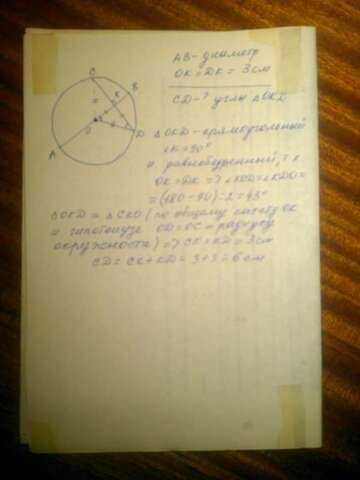 C
B
K
O
D
A
AB - диаметр
OK = DK = 3 см
CD - ? углы ΔOKD
ΔOKD - прямоугольный
∠K = 90°
и равнобедренный, т.к
OK = DK => ∠KOD = ∠KDO =
= (180 - 90) : 2 = 45°
ΔOKD = ΔCKO (по общему катету OK
и гипотенузе OD = OC = радиусу
окружности) => CK = KD = 3 см
CD = CK + KD = 3 + 3 = 6 см